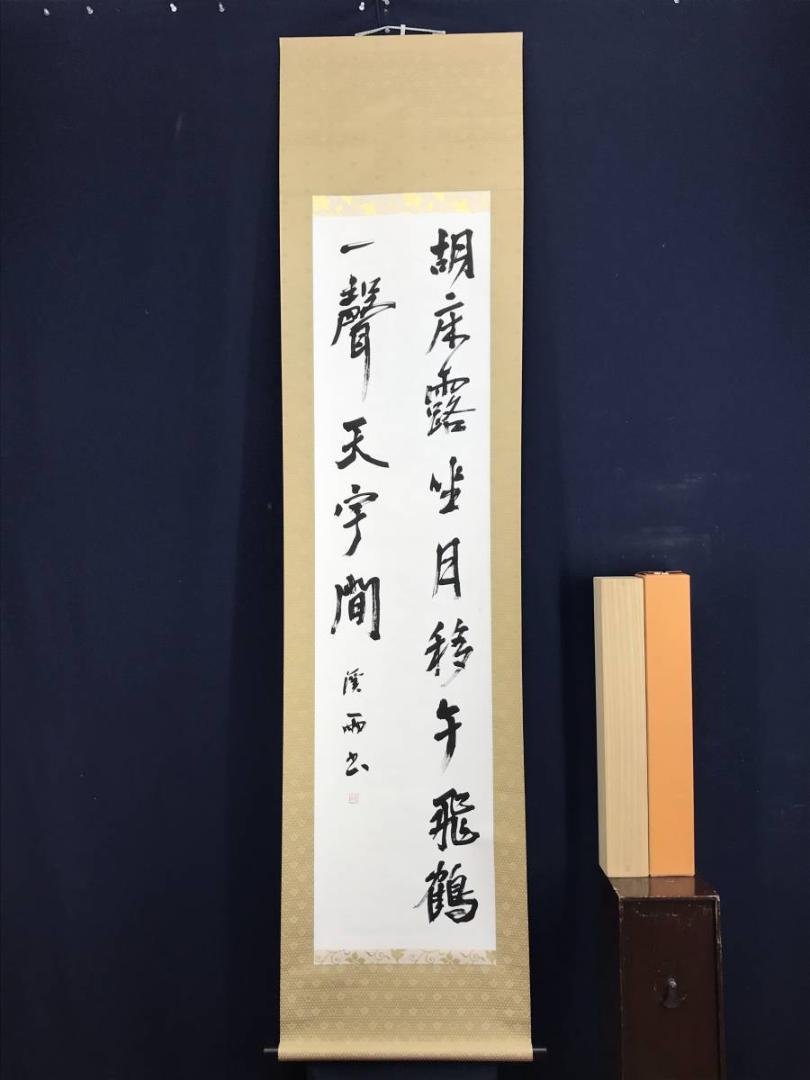 胡床露坐月移午飛鶴
一聲天宇間
溪雨書